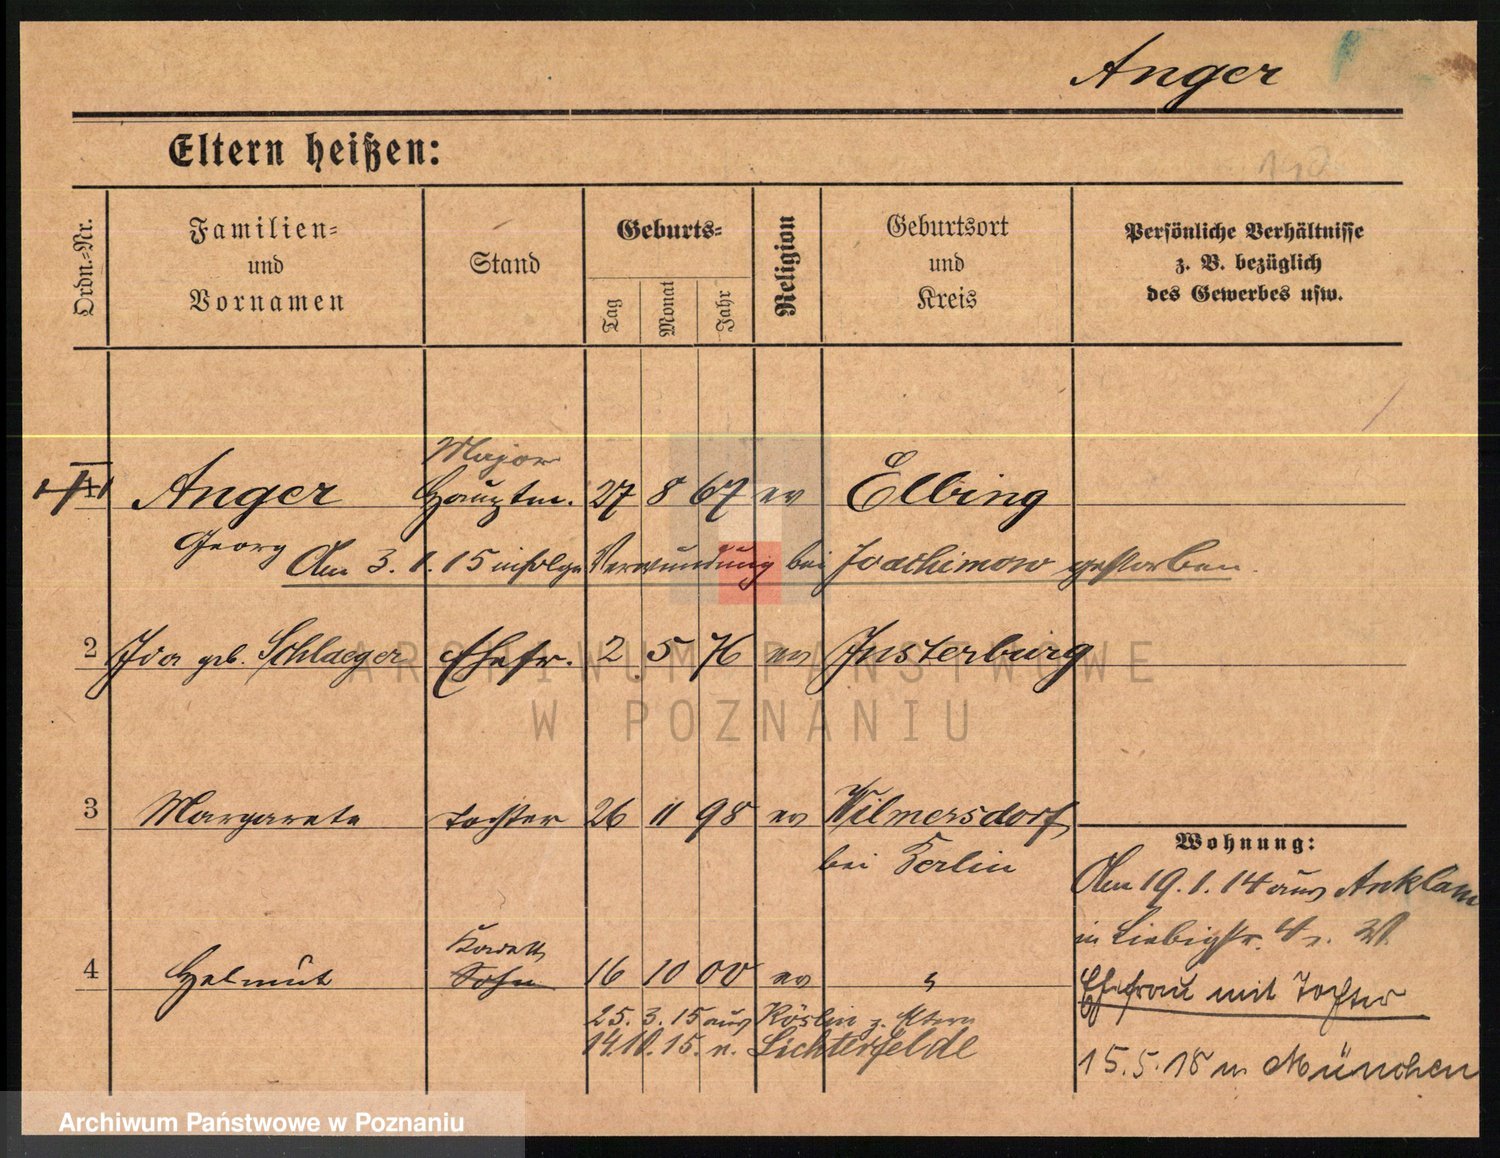 Anger
Eltern heißen:
Ordn.-Nr.
Familien-
und
Vornamen
Stand
Geburts-
Tag
Monat
Jahr
Religion
Geburtsort
und
Kreis
Persönliche Verhältnisse
z. B. bezüglich
des Gewerbes usw.
Major
1 Anger Hauptm. 27 8 67 ev Elbing
Georg
Am 3. 1. 15 infolge Verwundung bei Joachimow gestorben.
2 Ida geb. Schlaeger Ehefr. 2 5 76 ev Insterburg
3 Margarete Tochter 26 11 98 ev Wilmersdorf
bei Berlin
Kadett
4 Helmut Sohn 16 10 00 ev "
25. 3. 15 aus Köslin z. Eltern
14. 10. 15. n. Lichterfelde
Wohnung:
Am 19. 1. 14 aus Anklam
in Liebigstr. 4
Ehefrau mit Tochter
15. 5. 18 n. München
ARCHIWUM PAŃSTWOWE
W POZNANIU
Archiwum Państwowe w Poznaniu